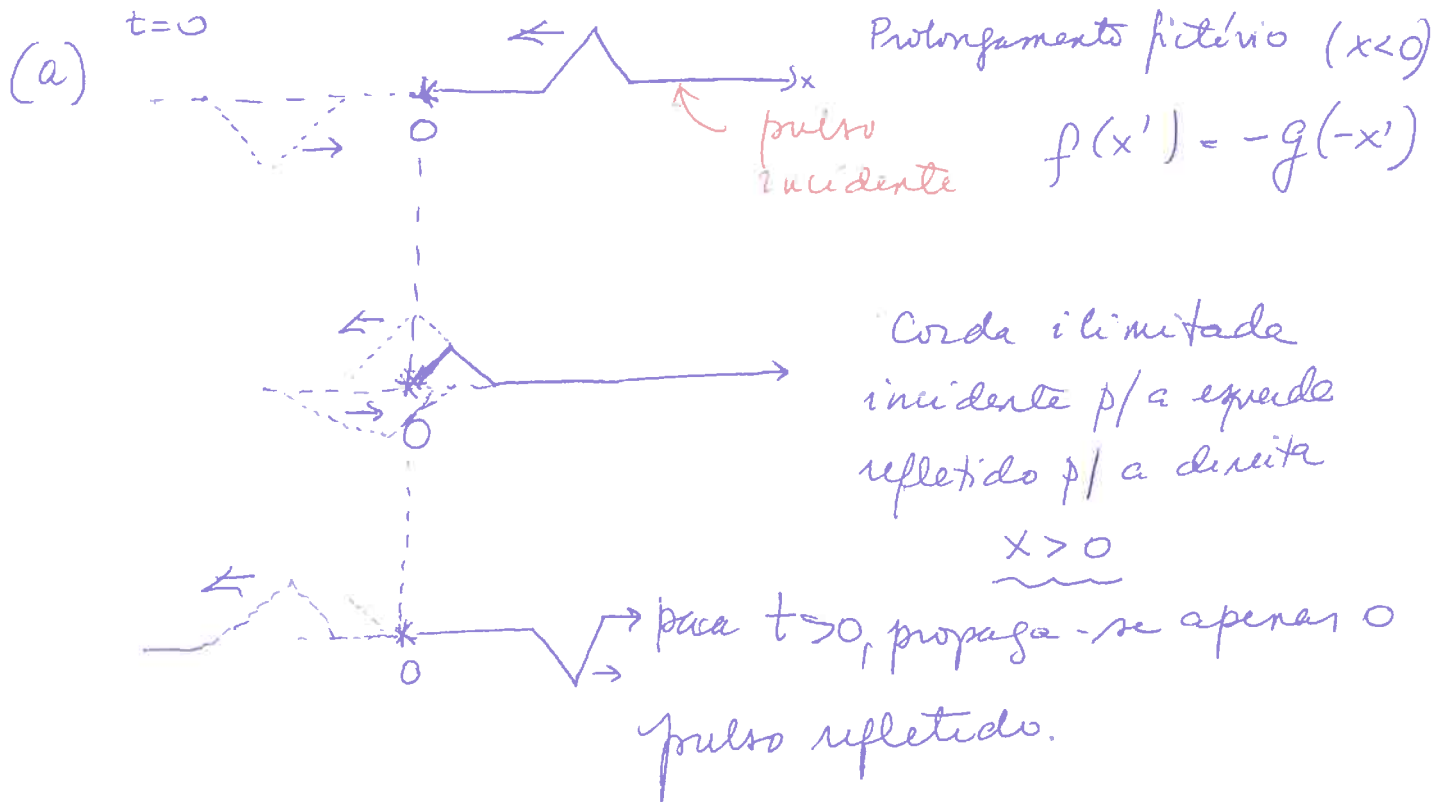 (a) t=0
Prolongamento fictício (x<0)
x
0
pulso
incidente
f(x') = -g(-x')
Corda ilimitada
incidente p/ a esquerda
refletido p/ a direita
0
x > 0
para t>0, propaga-se apenas o
0
pulso refletido.